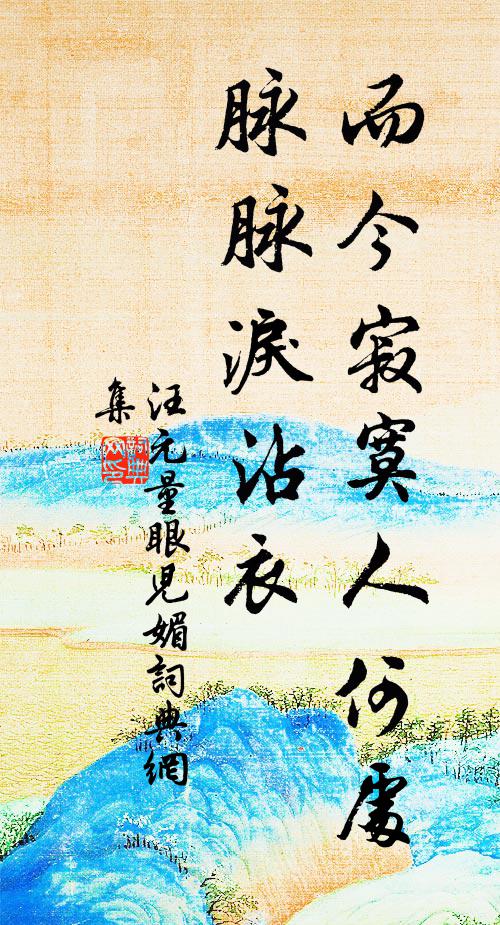 而今寂寞人何處
脉脉淚沾衣
汪元量眼児媚詞典網
集